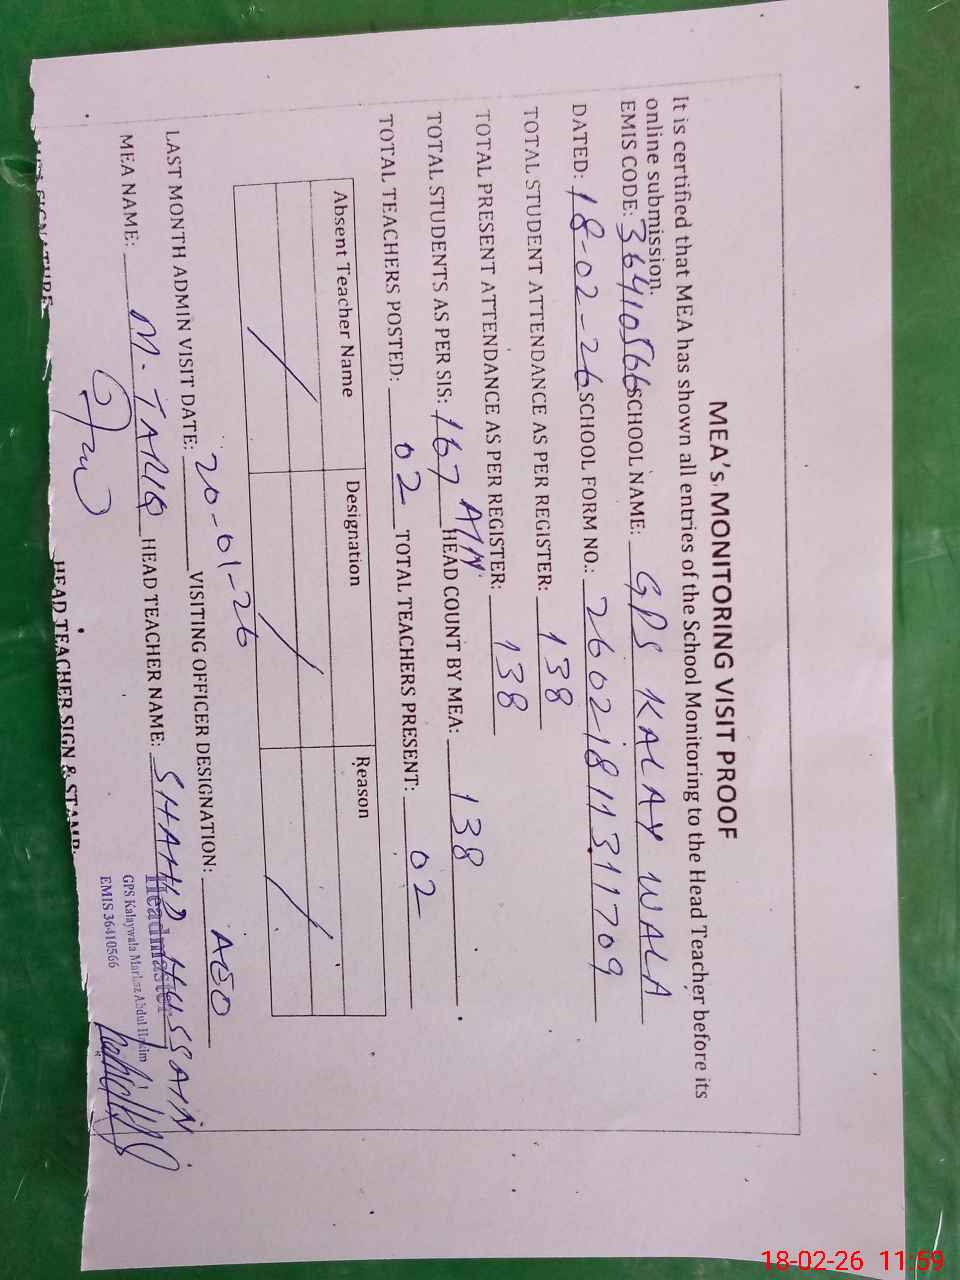 MEA's MONITORING VISIT PROOF
It is certified that MEA has shown all entries of the School Monitoring to the Head Teacher before its
online submission.
EMIS CODE: 36410566 SCHOOL NAME: GPS KALAY WALA
DATED: 18-02-26 SCHOOL FORM NO.: 26021811311709
TOTAL STUDENT ATTENDANCE AS PER REGISTER: 138
TOTAL PRESENT ATTENDANCE AS PER REGISTER: 138
TOTAL STUDENTS AS PER SIS: 167 HEAD COUNT BY MEA: 138
TOTAL TEACHERS POSTED: 02 TOTAL TEACHERS PRESENT: 02
Absent Teacher Name Designation Reason
/ / /
LAST MONTH ADMIN VISIT DATE: 20-01-26 VISITING OFFICER DESIGNATION: AEO
MEA NAME: M. TARIQ HEAD TEACHER NAME: SHAHID HUSSAIN
Headmaster
GPS Kalaywala Markaz Abdul Hakim
EMIS 36410566
HEAD TEACHER SIGN & STAMP:
18-02-26 11:59